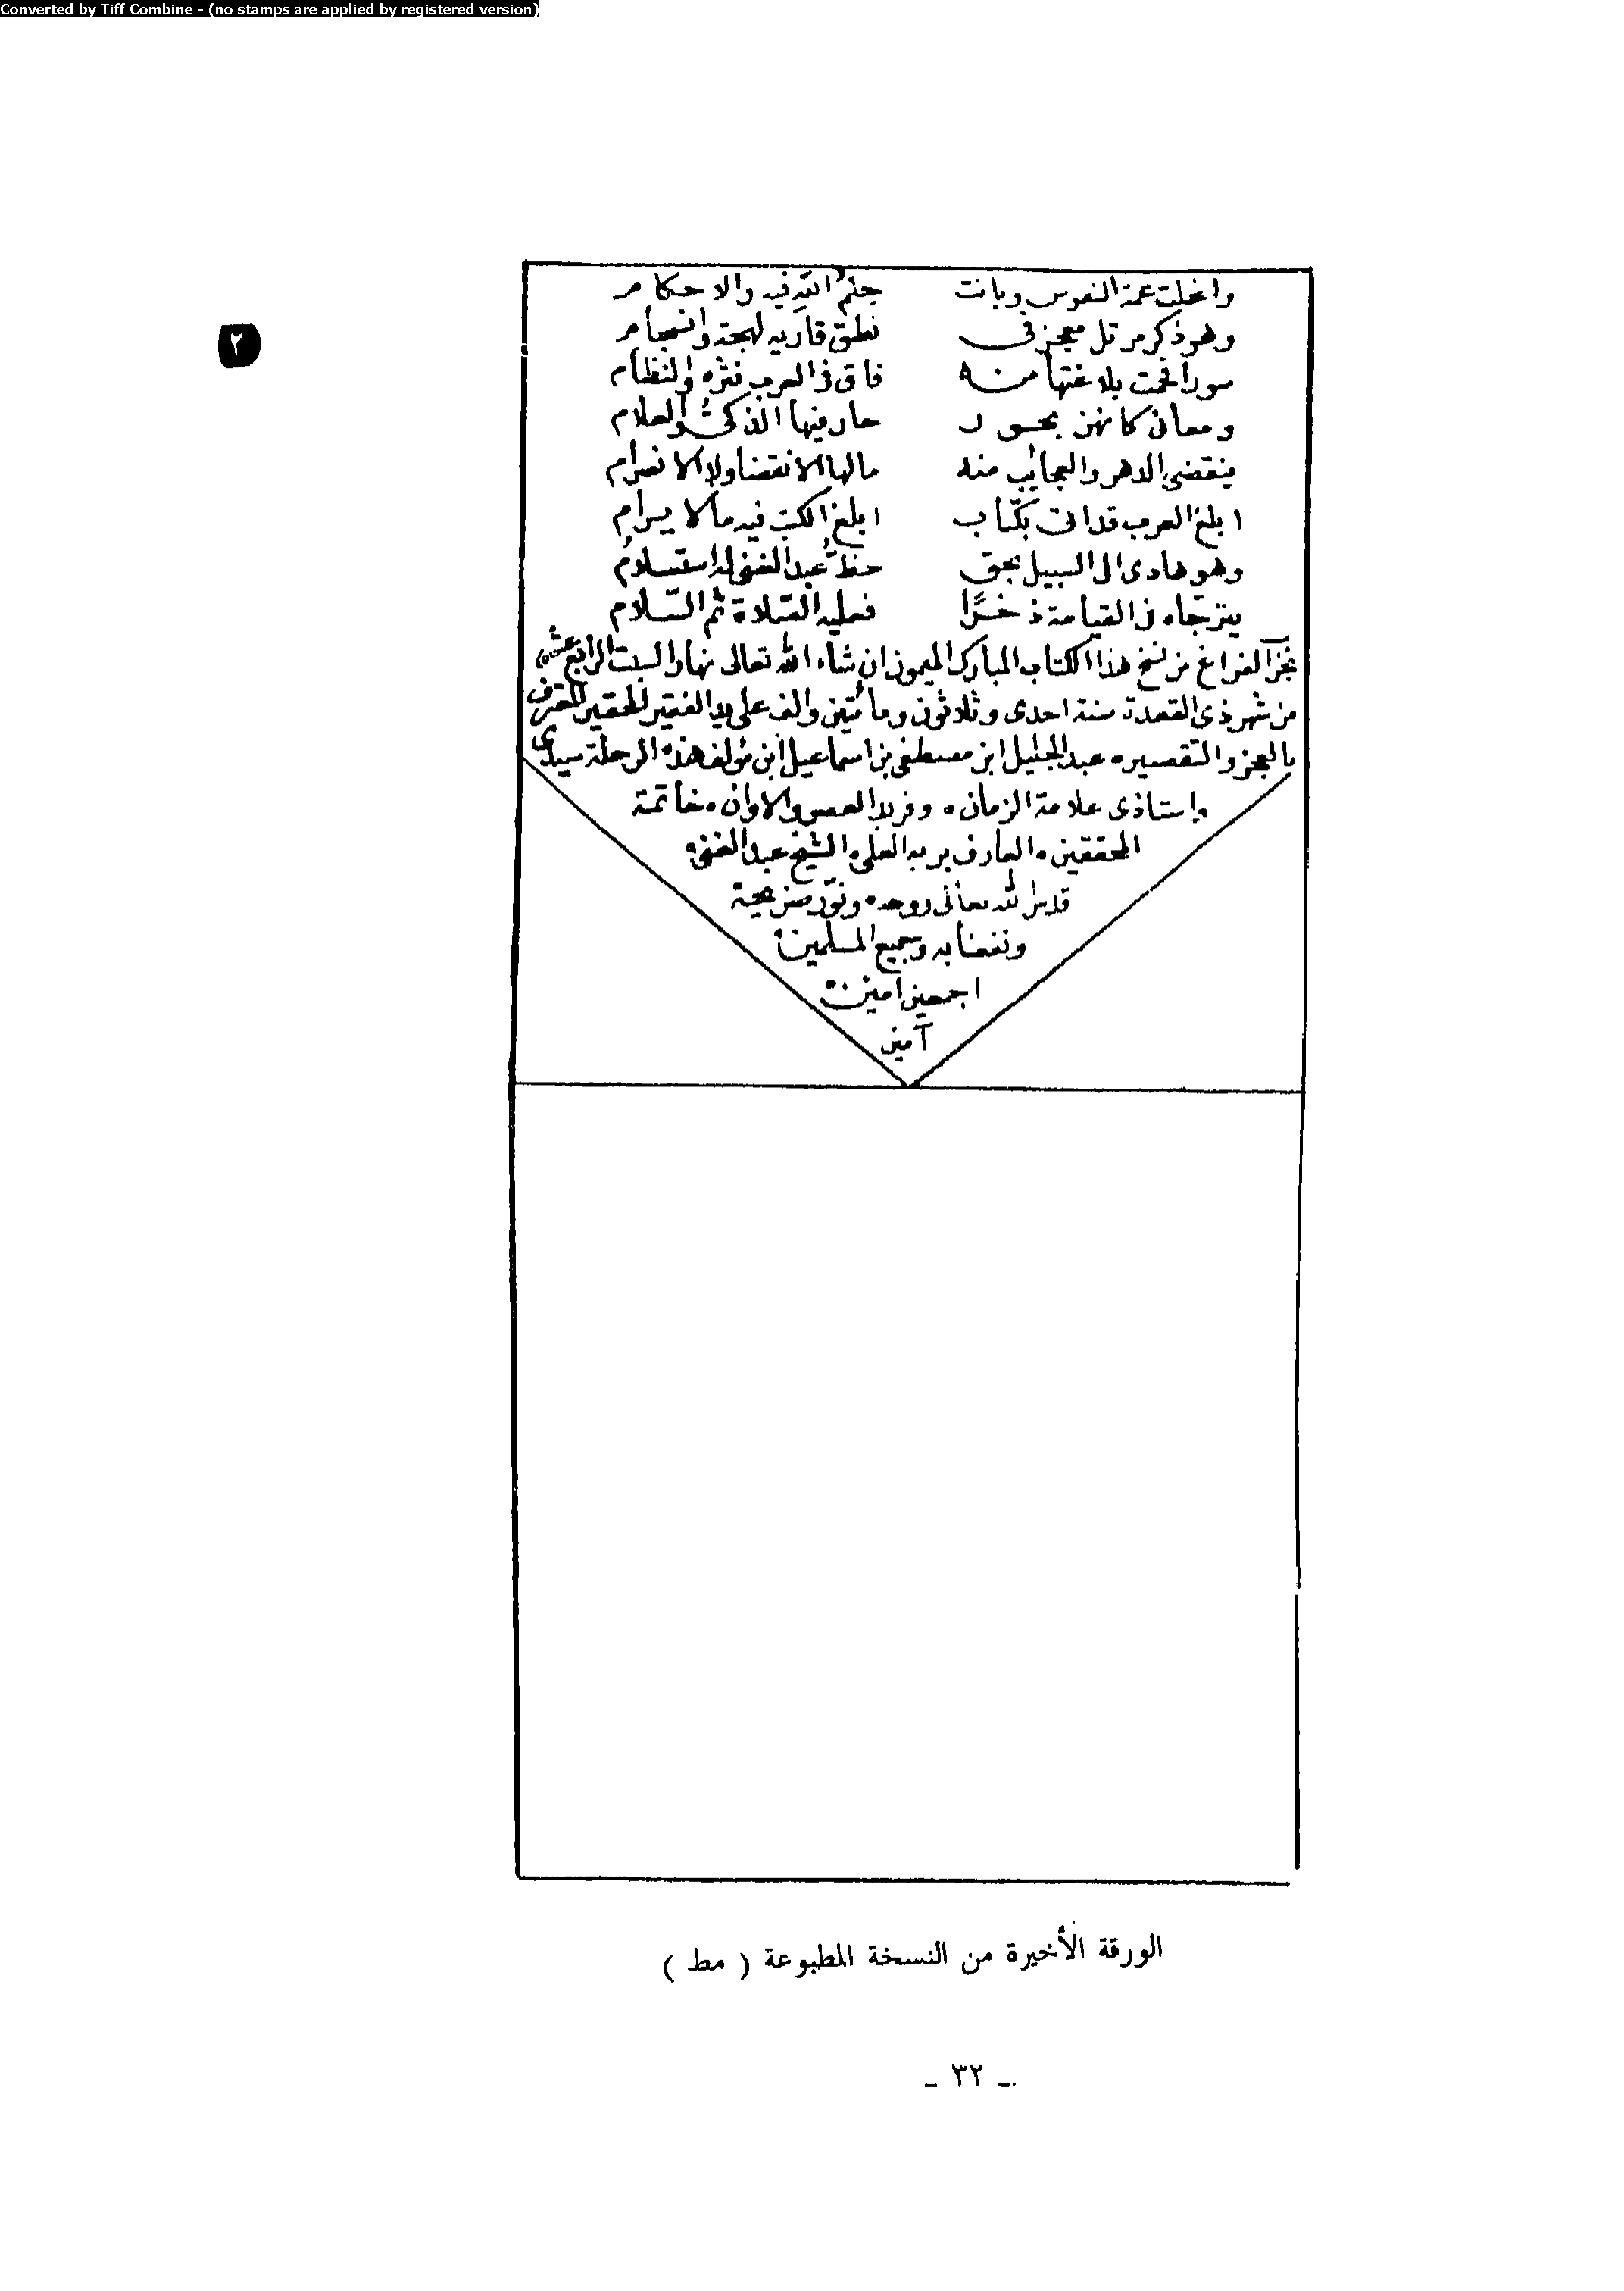 Converted by Tiff Combine - (no stamps are applied by registered version)
وانجلت غمة النفوس وبانت حكم الله فيه والاحكام
٢
وهو ذكر مرتل معجز في نطق قاريه لهجة وانسجام
سورا فخمت بلاغتها منه فاق في العرب نثره والنظام
ومعاني كانهن بحور حار فيها الذكي والعلام
ينقضي الدهر والعجائب منه مالها الانقضا ولا الانصرام
ابلغ العرب قد اتى بكتاب ابلغ الكتب فيه مالا يرام
وهو هادى الى السبيل بحق حظ عبد الغنى له استسلام
يترجاه في القيامة ذخرًا فعليه الصّلاة ثم السّلام
نجز الفراغ من نسخ هذا الكتاب المبارك الميمون ان شاء الله تعالى نهار السبت الرابع عشر
من شهر ذي القعدة سنة احدى وثلاثون ومائتين والف على يد الفقير الحقير المعترف
بالعجز والتقصير عبد الجليل ابن مصطفى بن اسماعيل ابن مؤلف هذه الرحلة سيدى
واستاذى علامة الزمان وفريد العصر والاوان خاتمة
المحققين العارف بربه العلى الشيخ عبد الغنى
قدس الله تعالى روحه ونوّر ضريحه
ونفعنا به وجميع المسلمين
اجمعين امين
آمين
الورقة الأخيرة من النسخة المطبوعة ( مط )
ـ ٣٢ ـ